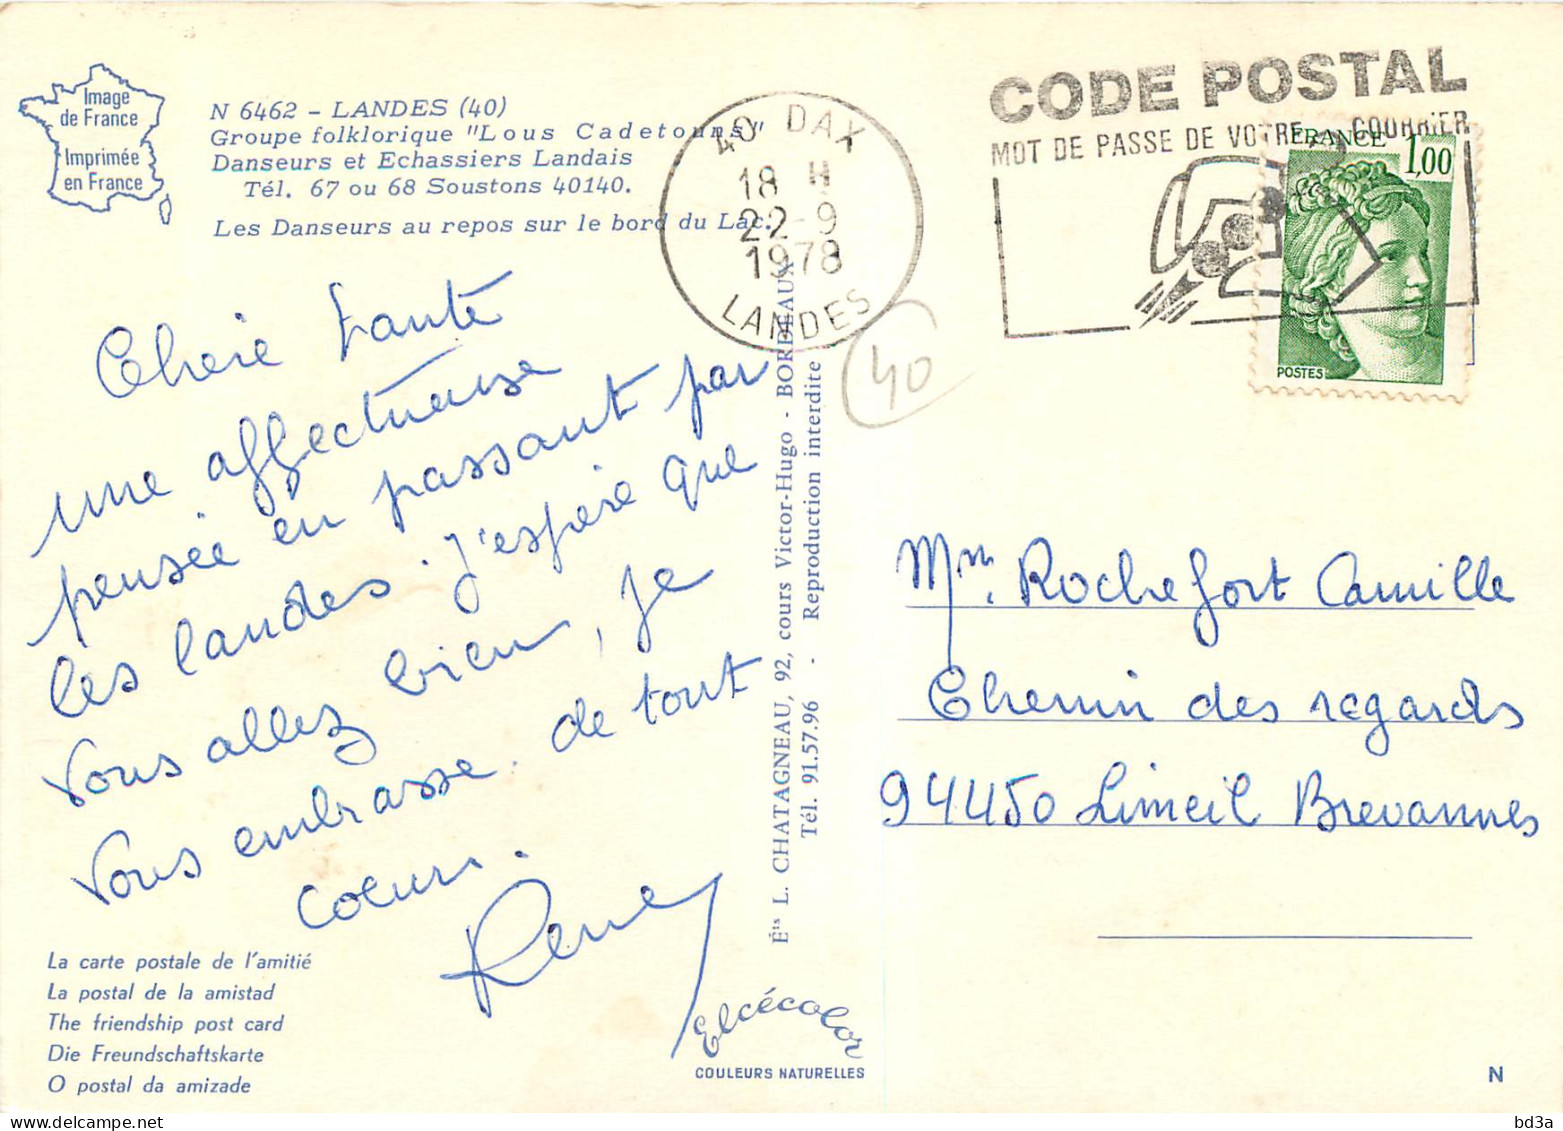 Image
de France
Imprimée
en France
N 6462 - LANDES (40)
Groupe folklorique "Lous Cadetouns"
Danseurs et Echassiers Landais
Tél. 67 ou 68 Soustons 40140.
Les Danseurs au repos sur le bord du Lac.
40 DAX
18 H
22-9
1978
LANDES
CODE POSTAL
MOT DE PASSE DE VOTRE COURRIER
FRANCE 1,00
POSTES
40
Chère tante
une affectueuse
pensée en passant par
les landes. J'espère que
vous allez bien, je
vous embrasse de tout
coeur.
René
Mme Rochefort Camille
Chemin des regards
94450 Limeil Brevannes
Éts L. CHATAGNEAU, 92, cours Victor-Hugo - BORDEAUX
Tél. 91.57.96 - Reproduction interdite
La carte postale de l'amitié
La postal de la amistad
The friendship post card
Die Freundschaftskarte
O postal da amizade
Elcécolor
COULEURS NATURELLES
N
delcampe.net
bd3a